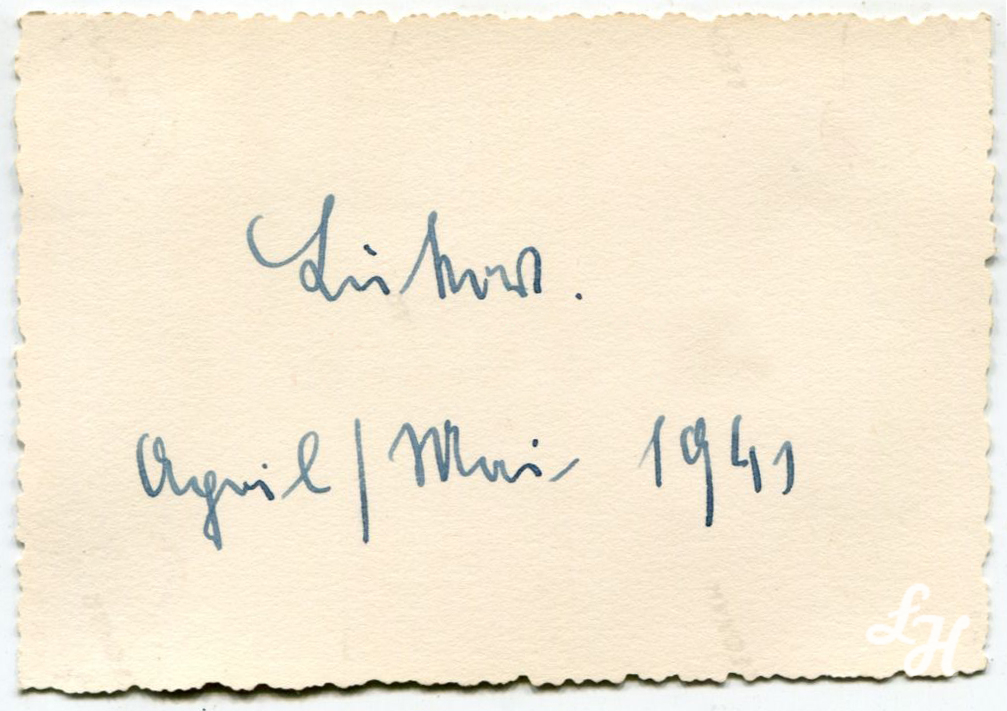 Lukow.
April / Mai 1941
LH